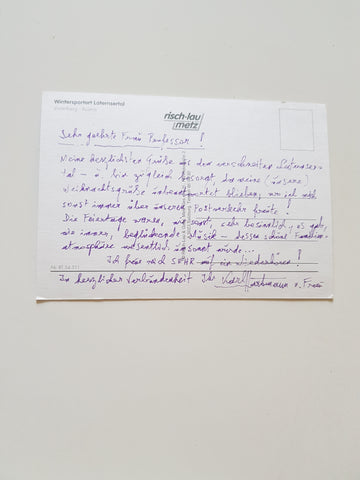 Wintersportort Laternsertal
risch-lau
metz
Sehr geehrte Frau Professor!
Meine herzlichsten Grüße aus dem verschneiten Laternser-
tal – & bin zugleich besorgt, da meine (unsere)
Weihnachtsgrüße unbeantwortet blieben, wo ich mich
sonst immer über unseren Postverkehr freute!
Die Feiertage waren, wie sonst, sehr besinnlich, es gab,
wie immer, beglückende Musik – dessen schöne Familien-
atmosphäre wesentlich umsonst wurde...
Ich freue mich SEHR auf ein Wiederhören!
In herzlicher Verbundenheit Ihr Karl u. Frau